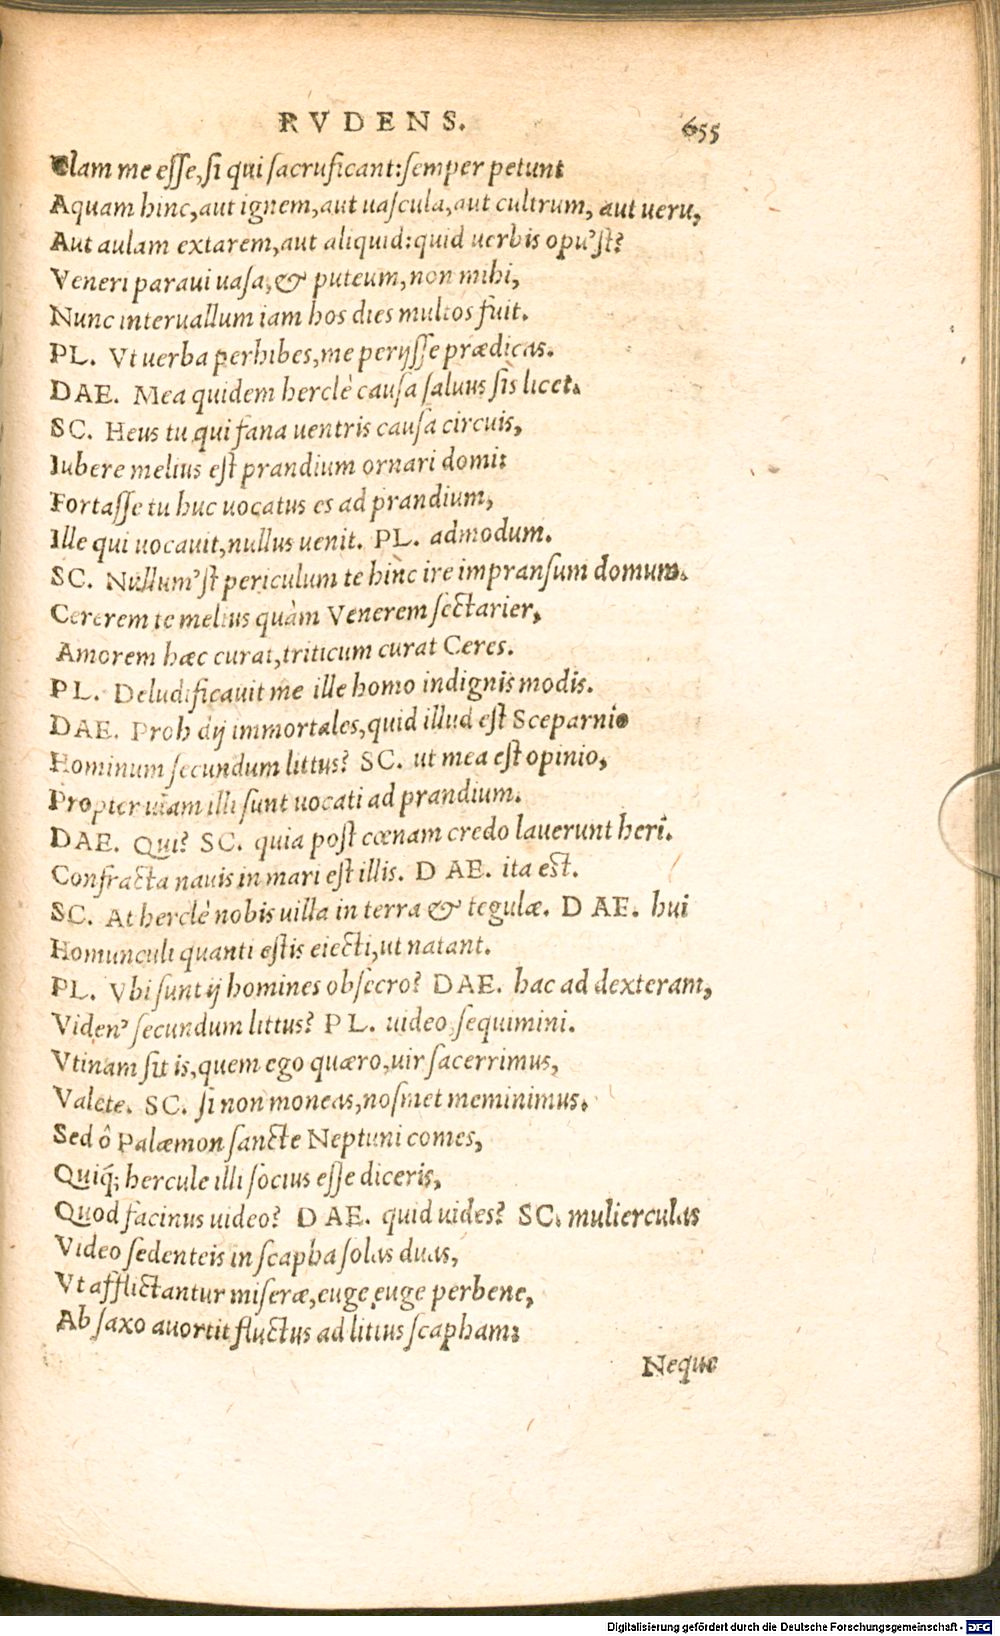 RVDENS. 655
Clam me esse, si qui sacruficant: semper petunt
Aquam hinc, aut ignem, aut uascula, aut cultrum, aut ueru,
Aut aulam extarem, aut aliquid: quid uerbis opu'st?
Veneri paraui uasa, & puteum, non mihi,
Nunc interuallum iam hos dies multos fuit.
PL. Vt uerba perhibes, me perijsse prædicas.
DAE. Mea quidem herclè causa saluus sis licet.
SC. Heus tu qui fana uentris causa circuis,
Iubere melius est prandium ornari domi:
Fortasse tu huc uocatus es ad prandium,
Ille qui uocauit, nullus uenit. PL. admodum.
SC. Nullum'st periculum te hinc ire impransum domum.
Cererem te melius quàm Venerem sectarier,
Amorem hæc curat, triticum curat Ceres.
PL. Deludificauit me ille homo indignis modis.
DAE. Proh dij immortales, quid illud est Sceparnio
Hominum secundum littus? SC. ut mea est opinio,
Propter uiam illi sunt uocati ad prandium.
DAE. Qui? SC. quia post cœnam credo lauerunt heri.
Confracta nauis in mari est illis. DAE. ita est.
SC. At herclè nobis uilla in terra & tegulæ. DAE. hui
Homunculi quanti estis eiecti, ut natant.
PL. Vbi sunt ij homines obsecro? DAE. hac ad dexteram,
Viden' secundum littus? PL. uideo, sequimini.
Vtinam sit is, quem ego quæro, uir sacerrimus,
Valete. SC. si non moneas, nosmet meminimus.
Sed ô Palæmon sancte Neptuni comes,
Quiq; hercule illi socius esse diceris,
Quod facinus uideo? DAE. quid uides? SC. mulierculas
Video sedenteis in scapha solas duas,
Vt afflictantur miseræ, euge euge perbene,
Ab saxo auortit fluctus ad litius scapham:
Neque
Digitalisierung gefördert durch die Deutsche Forschungsgemeinschaft - DFG